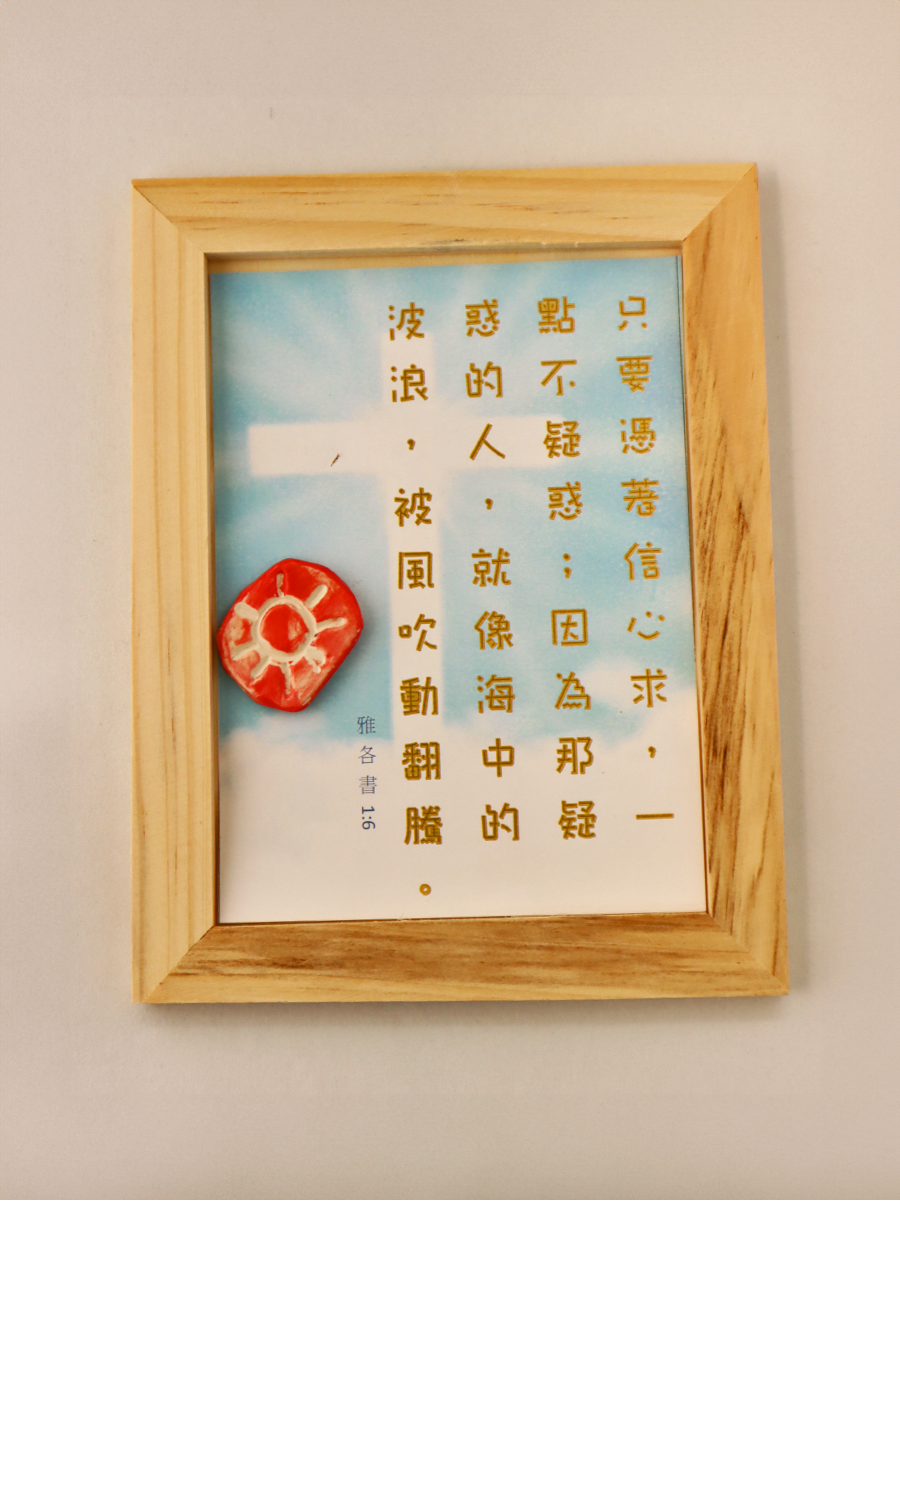 只要憑著信心求，一
點不疑惑；因為那疑
惑的人，就像海中的
波浪，被風吹動翻騰。
雅各書 1:6